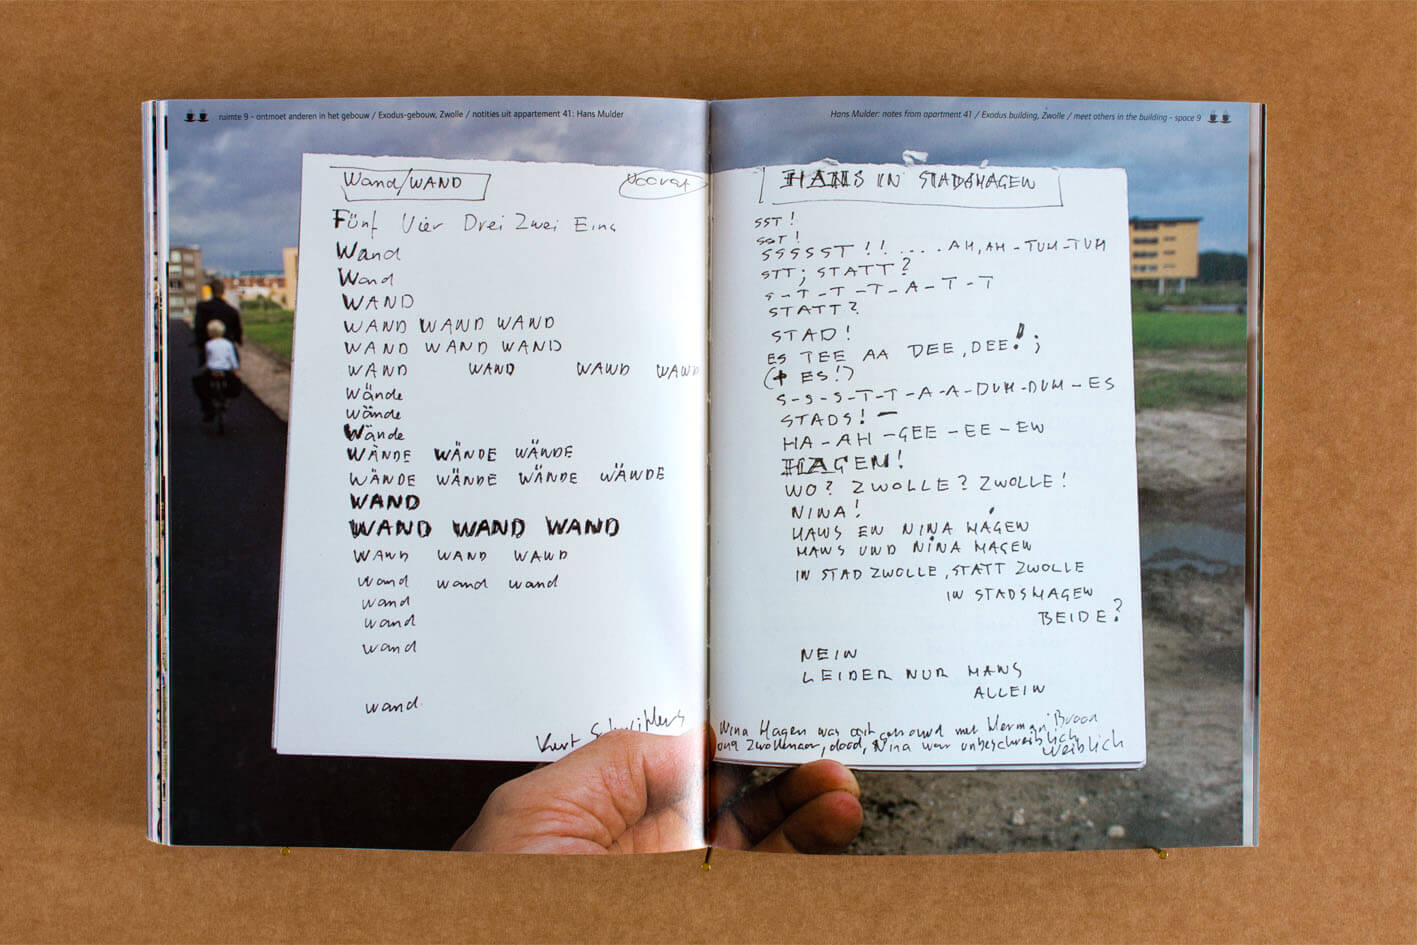 ruimte 9 - ontmoet anderen in het gebouw / Exodus-gebouw, Zwolle / notities uit appartement 41: Hans Mulder
Wand/WAND
vooraf
Fünf Vier Drei Zwei Eins
Wand
Wand
WAND
WAND WAND WAND
WAND WAND WAND
WAND WAND WAND WAND
Wände
Wände
Wände
WÄNDE WÄNDE WÄNDE
WÄNDE WÄNDE WÄNDE WÄNDE
WAND
WAND WAND WAND
WAND WAND WAND
wand wand wand
wand
wand
wand
wand
Kurt Schwitters
Hans Mulder: notes from apartment 41 / Exodus building, Zwolle / meet others in the building - space 9
HANS IN STADSHAGEN
SST!
SST!
SSSSST!! .... AH, AH-TUM-TUM
STT; STATT?
S-T-T-T-A-T-T
STATT?
STAD!
ES TEE AA DEE, DEE!;
(+ ES!)
S-S-S-T-T-A-A-DUM-DUM-ES
STADS! -
HA-AH-GEE-EE-EN
HAGEN!
WO? ZWOLLE? ZWOLLE!
NINA!
HANS EN NINA HAGEN
HANS UND NINA HAGEN
IN STAD ZWOLLE, STATT ZWOLLE
IN STADSHAGEN
BEIDE?
NEIN
LEIDER NUR HANS
ALLEIN
Nina Hagen was ooit getrouwd met Herman Brood
ons Zwollenaar, dood, Nina war unbeschreiblich
weiblich